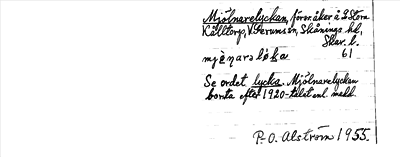 Mjölnarelyckan, försv. åker å St. Stora
Källtorp, V. Gerums sn, Skånings hd,
Skar. l.
61
Se ordet lycka. Mjölnarelyckan
borta efter 1920-talet enl. medd.
P.-O. Alström 1955.